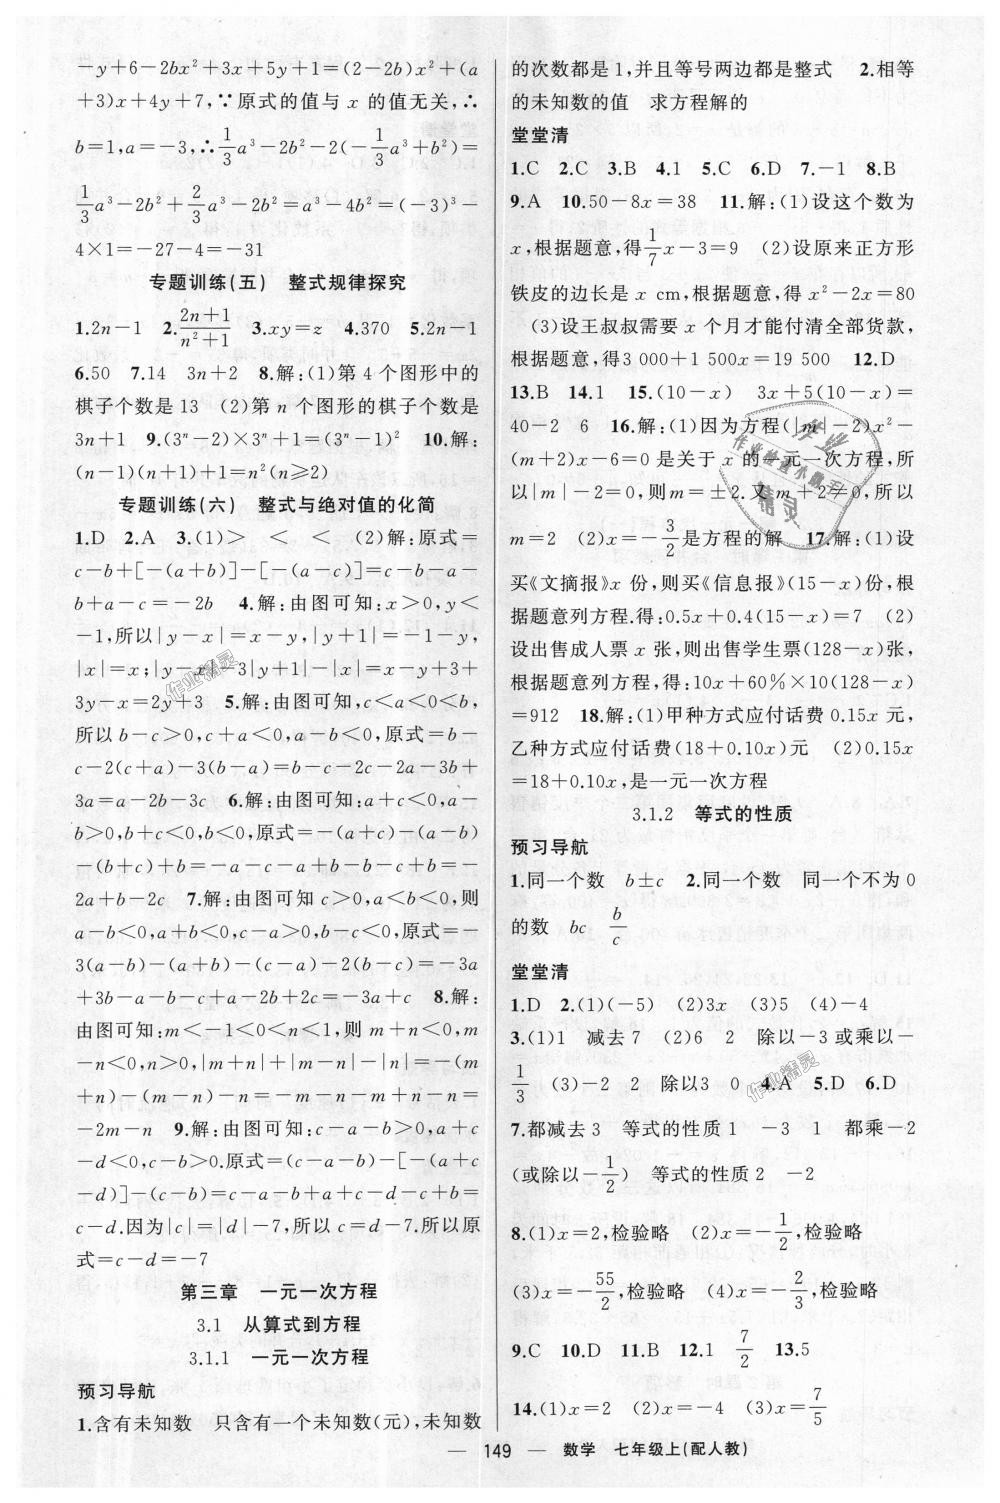 -y+6-2bx²+3x+5y+1=(2-2b)x²+(a
+3)x+4y+7,∵原式的值与 x 的值无关,∴
b=1,a=-3,∴1/3a³-2b²-2(-1/3a³+b²)=
1/3a³-2b²+2/3a³-2b²=a³-4b²=(-3)³-
4×1=-27-4=-31
专题训练(五) 整式规律探究
1.2n-1 2.(2n+1)/(n²+1) 3.xy=z 4.370 5.2n-1
6.50 7.14 3n+2 8.解:(1)第 4 个图形中的
棋子个数是 13 (2)第 n 个图形的棋子个数是
3n+1 9.(3ⁿ-2)×3ⁿ+1=(3ⁿ-1)² 10.解:
(n-1)(n+1)+1=n²(n≥2)
专题训练(六) 整式与绝对值的化简
1.D 2.A 3.(1)> < < (2)解:原式=
c-b+[-(a+b)]-[-(a-c)]=c-b-a-
b+a-c=-2b 4.解:由图可知:x>0,y<
-1,所以|y-x|=x-y,|y+1|=-1-y,
|x|=x;|y-x|-3|y+1|-|x|=x-y+3+
3y-x=2y+3 5.解:由图可知,c<a<0<b,
所以 b-c>0,c+a<0,a-b<0,原式=b-
c-2(c+a)-3(b-a)=b-c-2c-2a-3b+
3a=a-2b-3c 6.解:由图可知:a+c<0,a-
b>0,b+c<0,b<0,原式=-(a+c)-(a-b)
-(b+c)+b=-a-c-a+b-b-c+b=-
2a+b-2c 7.解:由图可知c>0,a<b<0,则
a-b<0,a+b<0,c-a>0,b-c<0,原式=-
3(a-b)-(a+b)-(c-a)-2(b-c)=-3a
+3b-a-b-c+a-2b+2c=-3a+c 8.解:
由图可知:m<-1<0<n<1,则 m+n<0,m
-n<0,n>0,|m+n|+|m-n|-|n|=-(m
+n)-(m-n)-n=-m-n-m+n-n=
-2m-n 9.解:由图可知:c-a-b>0,a+c
-d<0,c-b>0.原式=(c-a-b)-[-(a+c
-d)]-(c-b)=c-a-b+a+c-d-c+b=
c-d.因为|c|=|d|-7,所以 c=d-7.所以原
式=c-d=-7
第三章 一元一次方程
3.1 从算式到方程
3.1.1 一元一次方程
预习导航
1.含有未知数 只含有一个未知数(元),未知数
的次数都是 1,并且等号两边都是整式 2.相等
的未知数的值 求方程解的
堂堂清
1.C 2.C 3.B 4.1 5.C 6.D 7.-1 8.B
9.A 10.50-8x=38 11.解:(1)设这个数为
x,根据题意,得1/7x-3=9 (2)设原来正方形
铁皮的边长是 x cm,根据题意,得 x²-2x=80
(3)设王叔叔需要 x 个月才能付清全部货款,
根据题意,得3 000+1 500x=19 500 12.D
13.B 14.1 15.(10-x) 3x+5(10-x)=
40-2 6 16.解:(1)因为方程(|m|-2)x²-
(m+2)x-6=0 是关于 x 的一元一次方程,所
以|m|-2=0,则 m=±2.又 m+2≠0,所以
m=2 (2)x=-3/2是方程的解 17.解:(1)设
买《文摘报》x 份,则买《信息报》(15-x)份,根
据题意列方程,得:0.5x+0.4(15-x)=7 (2)
设出售成人票 x 张,则出售学生票(128-x)张,
根据题意列方程,得:10x+60%×10(128-x)
=912 18.解:(1)甲种方式应付话费 0.15x 元,
乙种方式应付话费(18+0.10x)元 (2)0.15x
=18+0.10x,是一元一次方程
3.1.2 等式的性质
预习导航
1.同一个数 b±c 2.同一个数 同一个不为 0
的数 bc b/c
堂堂清
1.D 2.(1)(-5) (2)3x (3)5 (4)-4
3.(1)1 减去 7 (2)6 2 除以-3 或乘以-
1/3 (3)-2 2 除以3 0 4.A 5.D 6.D
7.都减去 3 等式的性质 1 -3 1 都乘-2
(或除以-1/2) 等式的性质 2 -2
8.(1)x=2,检验略 (2)x=-1/2,检验略
(3)x=-55/2,检验略 (4)x=-2/3,检验略
9.C 10.D 11.B 12.1 7/2 13.5
14.(1)x=2 (2)x=-4 (3)x=7/5
— 149 — 数学 七年级上(配人教)
作业
作业检查小助手
精灵
作业精灵
作业精灵